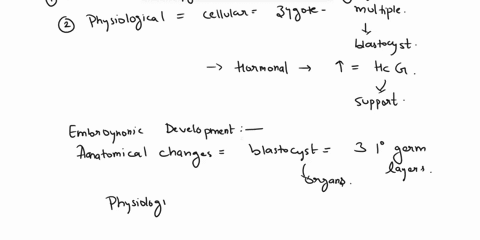 ② Physiological = cellular = zygote - multiple
↓
blastocyst.
→ Hormonal → ↑ = HcG.
↓
support.
Embroynonic Development:—
Aanatomical changes = blastocyst = 3 1° germ layers.
organs.
Physiologi